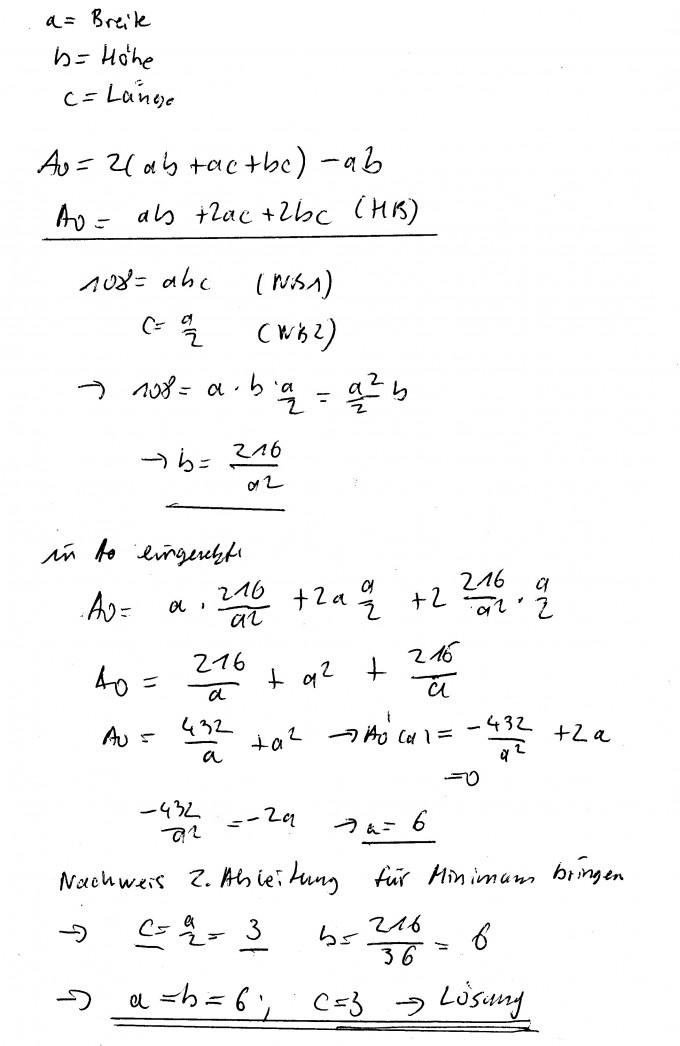 a = Breite
b = Höhe
c = Länge
A₀ = 2(ab + ac + bc) - ab
A₀ = ab + 2ac + 2bc (HB)
108 = abc (NB1)
c = a/2 (NB2)
→ 108 = a · b · a/2 = a²/2 b
→ b = 216/a²
in A₀ eingesetzt
A₀ = a · 216/a² + 2a a/2 + 2 216/a² · a/2
A₀ = 216/a + a² + 216/a
A₀ = 432/a + a² → A₀'(a) = -432/a² + 2a
= 0
-432/a² = -2a → a = 6
Nachweis 2. Ableitung für Minimum bringen
→ c = a/2 = 3 b = 216/36 = 6
→ a = b = 6; c = 3 → Lösung